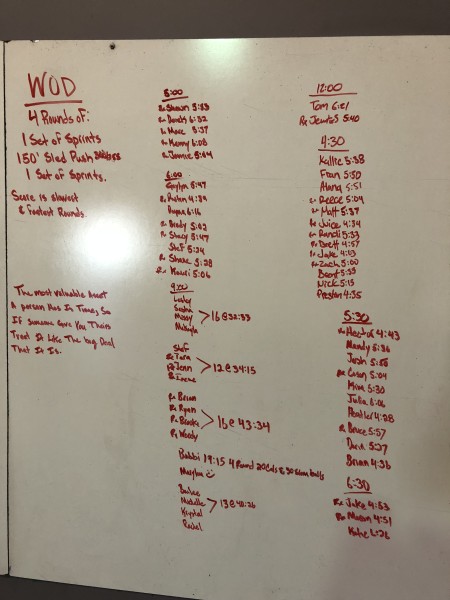 WOD
4 Rounds of:
1 Set of Sprints
150' Sled Push
1 Set of Sprints.
Score is slowest
& Fastest Rounds.
The most valuable Asset
A person Has Is Time, So
If someone Gives You Theirs
Treat It Like The big Deal
That It Is.
5:00
Rx Shawn 5:53
Rx 6:32
Rx Marc 5:37
Rx Kenny 6:08
Rx Jamie 5:04
6:00
5:47
4:34
6:16
Rx Brady 5:02
Rx Stacy 5:47
Stef 5:34
Rx Shane 5:28
Rx 5:06
9:00
Lesley
16@32:33
Stef
Rx Tara
Rx Jenn
Rx Irene
12@34:15
Rx Brian
Rx Ryan
Rx Brooke
Rx Woody
16@43:34
Bobbi 19:15 4 Round 20 Cals & 30 Slam balls
Bailee
Michelle
Krystal
Rachel
12:00
Tom 6:21
Rx 5:40
4:30
Kallie 5:58
Fran 5:50
Alana 5:51
Rx Reece 5:04
Rx Matt 5:37
Rx Juice 4:34
Rx Randi 5:33
Rx Brett 4:57
Rx Jake 4:53
Rx Zach 5:00
Brent 5:55
Nick 5:15
Preslar 4:35
5:30
Rx Hector 4:43
Mandy 5:36
Josh 5:50
Rx Eason 5:04
Mike 5:30
Julia 6:06
4:28
Rx Bruce 5:57
5:27
Brian 4:36
6:30
Rx Jake 4:53
Rx Mason 4:51
Katie 6:26